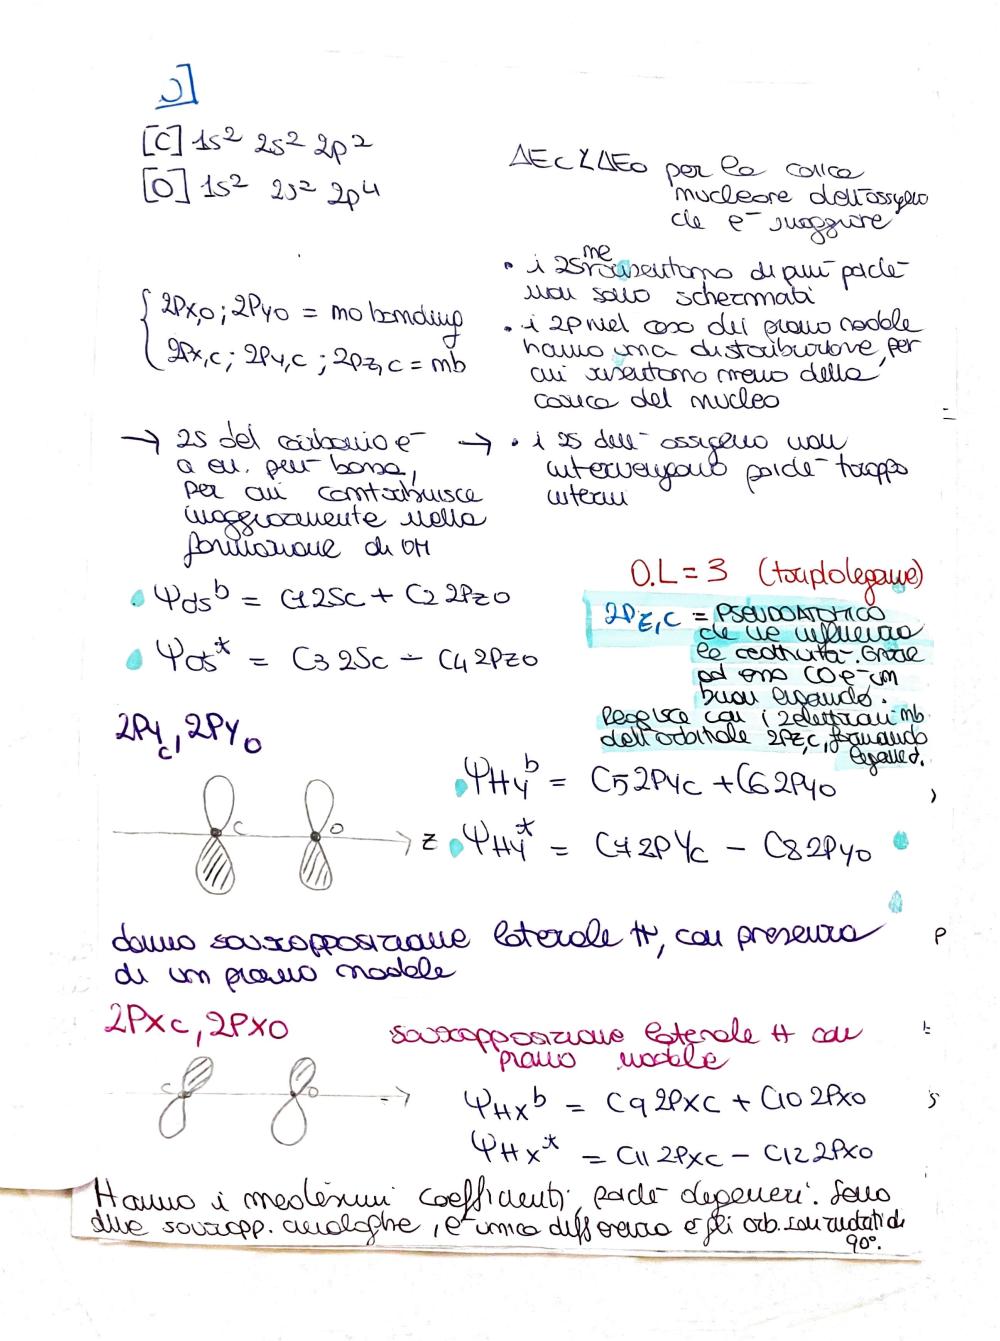 [C] 1s² 2s² 2p²
[O] 1s² 2s² 2p⁴
ΔEc < ΔEo per la carica
nucleare dell'ossigeno
che è maggiore
{ 2Px,o; 2Pyo = no bonding
2Px,c; 2Py,c; 2Pz,c = nb
• i 2s ne risentono di più poiché
non sono schermati
• i 2p nel caso dei piano nodale
hanno una distribuzione, per
cui risentono meno della
carica del nucleo
→ 2s del carbonio è
a en. più bassa,
per cui contribuisce
maggiormente nella
formazione di OM
→ • i 2s dell'ossigeno non
intervengono poiché troppo
interni
Ψσs^b = C1 2Sc + C2 2Pzo
Ψσs* = C3 2Sc - C4 2Pzo
O.L = 3 (triplo legame)
2Pz,c = PSEUDOATOMICO
che ne influenza
la reattività. Grazie
ad esso CO è un
buon legando.
Reagisce con i 2 elettroni nb
dell'orbitale 2Pz,c, formando
legame σ.
2Pyc, 2Pyo
C
O
z
Ψπy^b = C5 2Pyc + C6 2Pyo
Ψπy* = C7 2Pyc - C8 2Pyo
danno sovrapposizione laterale π, con presenza
di un piano nodale
2Pxc, 2Pxo
sovrapposizione laterale π con
piano nodale
C
O
Ψπx^b = C9 2Pxc + C10 2Pxo
Ψπx* = C11 2Pxc - C12 2Pxo
Hanno i medesimi coefficienti, poiché degeneri. Sono
due sovrapp. analoghe, l'unica differenza è gli orb. son ruotati di
90°.